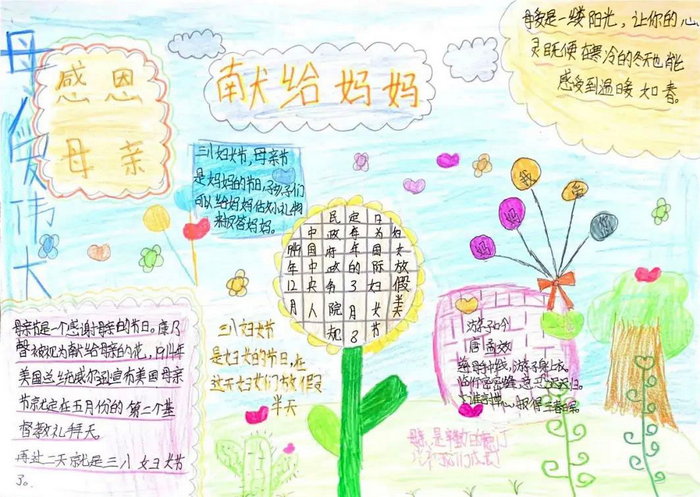 母爱伟大
感恩
母亲
献给妈妈
母爱是一缕阳光，让你的心
灵既使在寒冷的冬天也能
感受到温暖如春。
三八妇女节，母亲节
是大妈妈的节日，孩子们
可以给妈妈做小礼物
来报答妈妈。
我
爱
妈
妈
民定日
中政年为妇
1949国府年国女
年中政的际放
12央务3妇假
月人院月女美
规8节
三八妇女节
是妇女的节日，在
这天妇女们放假
半天
游子吟
唐 孟郊
母亲节是一个感谢母亲的节日。康乃
馨被视为献给母亲的花，1914年
美国总统威尔逊宣布美国母亲
节定在五月份的第二个基
督教礼拜天。
再过二天就是三八妇女节
了。